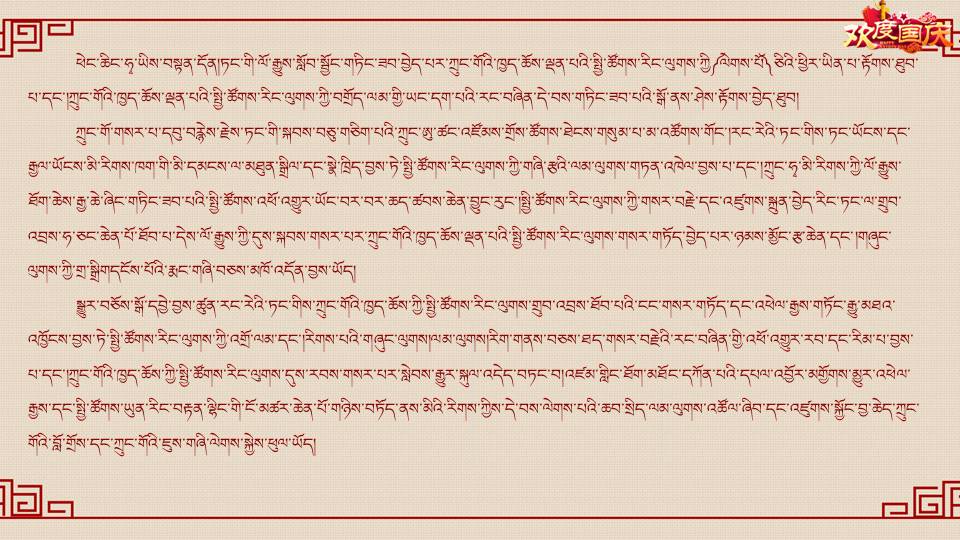 欢度国庆
ཕེང་ཆེང་ཧྭ་ཡིས་བསྟན་དོན།ཏང་གི་ལོ་རྒྱུས་སློབ་སྦྱོང་གཏིང་ཟབ་བྱེད་པར་ཀྲུང་གོའི་ཁྱད་ཆོས་ལྡན་པའི་སྤྱི་ཚོགས་རིང་ལུགས་ཀྱི༼ལེགས་པོ༽ ཅིའི་ཕྱིར་ཡིན་པ་རྟོགས་ཐུབ་
པ་དང་།ཀྲུང་གོའི་ཁྱད་ཆོས་ལྡན་པའི་སྤྱི་ཚོགས་རིང་ལུགས་ཀྱི་བགྲོད་ལམ་གྱི་ཡང་དག་པའི་རང་བཞིན་དེ་བས་གཏིང་ཟབ་པའི་སྒོ་ནས་ཤེས་རྟོགས་བྱེད་ཐུབ།
ཀྲུང་གོ་གསར་པ་དབུ་བརྙེས་རྗེས་ཏང་གི་སྐབས་བཅུ་གཅིག་པའི་ཀྲུང་ཨུ་ཚང་འཛོམས་གྲོས་ཚོགས་ཐེངས་གསུམ་པ་མ་འཚོགས་གོང་།རང་རེའི་ཏང་གིས་ཏང་ཡོངས་དང་
རྒྱལ་ཡོངས་མི་རིགས་ཁག་གི་མི་དམངས་ལ་མཐུན་སྒྲིལ་དང་སྣེ་ཁྲིད་བྱས་ཏེ་སྤྱི་ཚོགས་རིང་ལུགས་ཀྱི་གཞི་རྩའི་ལམ་ལུགས་གཏན་འཁེལ་བྱས་པ་དང་།ཀྲུང་ཧྭ་མི་རིགས་ཀྱི་ལོ་རྒྱུས་
ཐོག་ཆེས་རྒྱ་ཆེ་ཞིང་གཏིང་ཟབ་པའི་སྤྱི་ཚོགས་འཕོ་འགྱུར་ཡོང་བར་བར་ཆད་ཚབས་ཆེན་བྱུང་རུང་།སྤྱི་ཚོགས་རིང་ལུགས་ཀྱི་གསར་བརྗེ་དང་འཛུགས་སྐྲུན་བྱེད་རིང་ཏང་ལ་གྲུབ་
འབྲས་ཧ་ཅང་ཆེན་པོ་ཐོབ་པ་དེས་ལོ་རྒྱུས་ཀྱི་དུས་སྐབས་གསར་པར་ཀྲུང་གོའི་ཁྱད་ཆོས་ལྡན་པའི་སྤྱི་ཚོགས་རིང་ལུགས་གསར་གཏོད་བྱེད་པར་ཉམས་མྱོང་རྩ་ཆེན་དང་།གཞུང་
ལུགས་ཀྱི་གྲ་སྒྲིགདངོས་པོའི་རྨང་གཞི་བཅས་མཁོ་འདོན་བྱས་ཡོད།
སྒྱུར་བཅོས་སྒོ་དབྱེ་བྱས་ཚུན་རང་རེའི་ཏང་གིས་ཀྲུང་གོའི་ཁྱད་ཆོས་ཀྱི་སྤྱི་ཚོགས་རིང་ལུགས་གྲུབ་འབྲས་ཐོབ་པའི་ངང་གསར་གཏོད་དང་འཕེལ་རྒྱས་གཏོང་རྒྱུ་མཐའ་
འཁྱོངས་བྱས་ཏེ་སྤྱི་ཚོགས་རིང་ལུགས་ཀྱི་འགྲོ་ལམ་དང་།རིགས་པའི་གཞུང་ལུགས།ལམ་ལུགས།རིག་གནས་བཅས་ཐད་གསར་བརྗེའི་རང་བཞིན་གྱི་འཕོ་འགྱུར་རབ་དང་རིམ་པ་བྱས་
པ་དང་།ཀྲུང་གོའི་ཁྱད་ཆོས་ཀྱི་སྤྱི་ཚོགས་རིང་ལུགས་དུས་རབས་གསར་པར་སླེབས་རྒྱུར་སྐུལ་འདེད་བཏང་བ།འཛམ་གླིང་ཐོག་མཐོང་དཀོན་པའི་དཔལ་འབྱོར་མགྱོགས་མྱུར་འཕེལ་
རྒྱས་དང་སྤྱི་ཚོགས་ཡུན་རིང་བརྟན་ལྷིང་གི་ངོ་མཚར་ཆེན་པོ་གཉིས་བཏོད་ནས་མིའི་རིགས་ཀྱིས་དེ་བས་ལེགས་པའི་ཆབ་སྲིད་ལམ་ལུགས་འཚོལ་ཞིབ་དང་འཛུགས་སྐྱོང་བྱ་ཆེད་ཀྲུང་
གོའི་བློ་གྲོས་དང་ཀྲུང་གོའི་ཇུས་གཞི་ལེགས་སྐྱེས་ཕུལ་ཡོད།